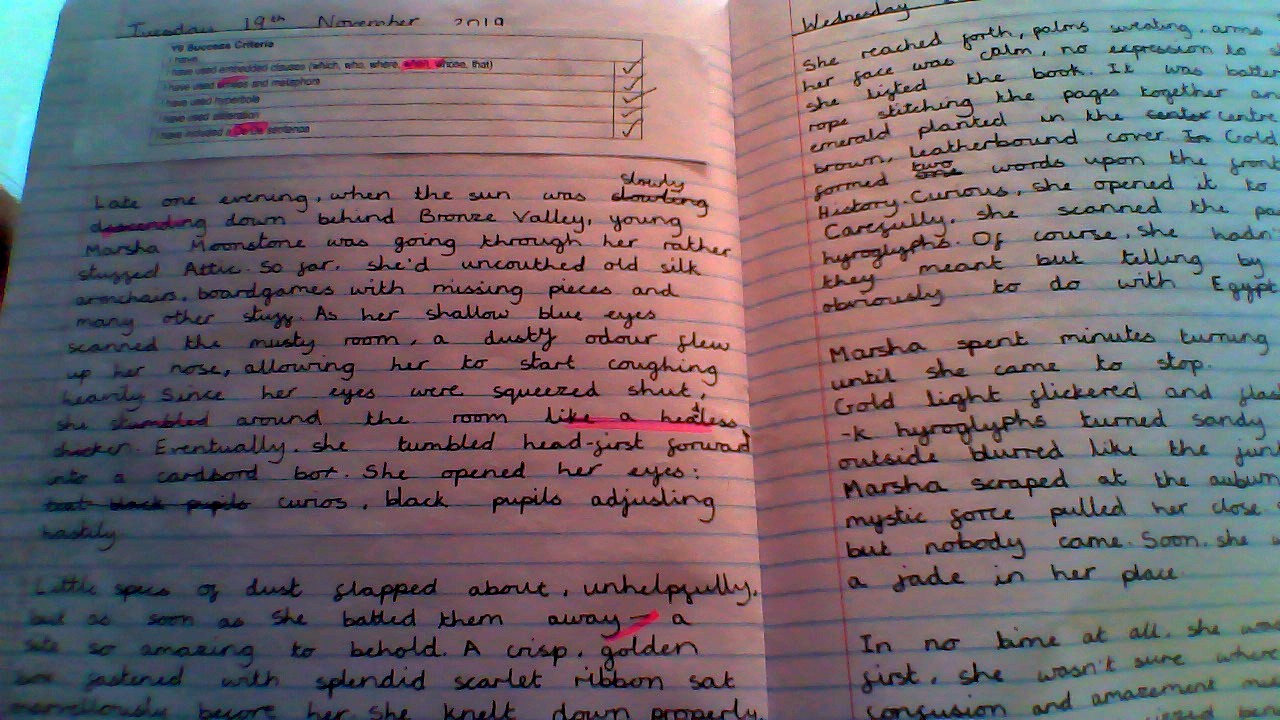 Tuesday 19th November 2019
Y6 Success Criteria
I have
I have used embedded clauses (which, who, where, when, whose, that)
I have used similes and metaphors
I have used hyperbole
I have used alliteration
I have included a De:De sentence
Late one evening, when the sun was slowly
descending down behind Bronze Valley, young
Marsha Moonstone was going through her rather
stuffed Attic. So far, she'd uncouthed old silk
armchairs, boardgames with missing pieces and
many other stuff. As her shallow blue eyes
scanned the musty room, a dusty odour flew
up her nose, allowing her to start coughing
heavily. Since her eyes were squeezed shut,
she stumbled around the room like a headless
chicken. Eventually, she tumbled head-first forward
into a cardbord box. She opened her eyes:
curios, black pupils adjusting
hastily.
Little specs of dust flapped about, unhelpfully,
but as soon as she batted them away – a
site so amazing to behold. A crisp, golden
fastened with splendid scarlet ribbon sat
marvellously before her. She knelt down properly,
Wednesday
She reached forth, palms sweating, arms
her face was calm, no expression to
she lifted the book. It was batter
rope stitching the pages together an
emerald planted in the center centre
brown, leatherbound cover. In Gold
formed two words upon the front
History. Curious, she opened it to
Carefully, she scanned the pa
hyroglyphs. Of course, she hadn'
they meant but telling by
obviously to do with Egypt
Marsha spent minutes turning
until she came to stop.
Gold light flickered and flas
-k hyroglyphs turned sandy
outside blurred like the jun
Marsha scraped at the auburn
mystic force pulled her close
but nobody came. Soon, she w
a jade in her place.
In no time at all, she
first, she wasn't sure where
confusion and amazement